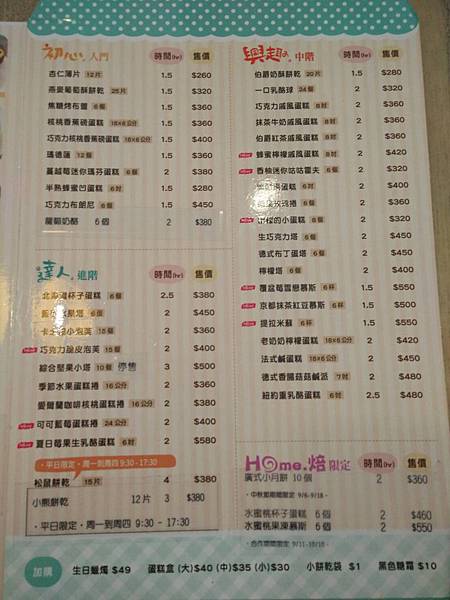 初心 入門 時間(hr) 售價
杏仁薄片 12片 1.5 $260
燕麥葡萄酥餅乾 25片 1.5 $320
焦糖烤布蕾 6個 1.5 $360
核桃香蕉磅蛋糕 16×6公分 1.5 $360
巧克力核桃香蕉磅蛋糕 16×6公分 1.5 $400
瑪德蓮 12個 1.5 $360
蔓越莓迷你瑪芬蛋糕 6個 2 $280
半熟蜂蜜凹蛋糕 6吋 1.5 $360
巧克力布朗尼 6個 1.5 $450
葡萄奶酪 6個 2 $380
達人 進階 時間(hr) 售價
北海道杯子蛋糕 6個 2.5 $380
水果塔 6個 $400
小泡芙 15個 $360
巧克力脆皮泡芙 15個 2 $400
綜合堅果小塔 10個 停售 3 $500
季節水果蛋糕捲 16公分 2 $360
愛爾蘭咖啡核桃蛋糕捲 16公分 2 $380
可可藍莓蛋糕捲 24公分 2 $400
夏日莓果生乳酪蛋糕 6吋 2 $580
・平日限定・週一到週四 9:30 - 17:30
松鼠餅乾 15片 4 $380
小熊餅乾 12片 3 $380
・平日限定・周一到周四 9:30 - 17:30
興趣 中階 時間(hr) 售價
伯爵奶酥餅乾 20片 1.5 $280
一口乳酪球 24個 2 $320
巧克力戚風蛋糕 8吋 2 $360
抹茶牛奶戚風蛋糕 8吋 2 $360
伯爵紅茶戚風蛋糕 8吋 2 $360
蜂蜜檸檬戚風蛋糕 8吋 2 $400
香柚迷你咕咕霍夫 6個 2 $320
蛋糕 6吋 2 $420
玫瑰沛 6個 2 $400
的小蛋糕 8個 2 $320
生巧克力塔 6個 2 $450
德式布丁蛋塔 6個 2 $450
檸檬塔 6個 2 $400
覆盆莓雪慕斯 6杯 1.5 $550
京都抹茶紅豆慕斯 6杯 1.5 $500
提拉米蘇 6杯 1.5 $550
老奶奶檸檬蛋糕 16×6公分 2 $420
法式鹹蛋糕 16×6公分 2 $450
德式香腸菇菇鹹派 7吋 2 $480
紐約重乳酪蛋糕 6吋 2.5 $480
Home.焙 限定 時間(hr) 售價
廣式小月餅 10個 2 $360
・中秋節期間限定 9/6-9/18・
水蜜桃杯子蛋糕 6個 2 $460
水蜜桃果凍慕斯 6個 2 $550
・合作期間限定 9/11-10/18・
加購 生日蠟燭 $49 蛋糕盒 (大)$40 (中)$35 (小)$30 小餅乾袋 $1 黑色糖霜 $10